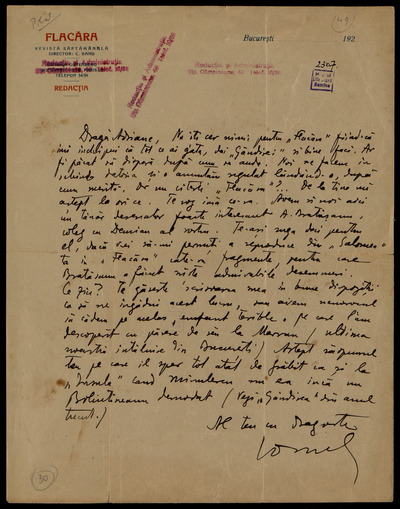 FLACĂRA
București
192
REVISTĂ SĂPTĂMÂNALĂ
DIRECTOR: C. BANU
Redacția și Administrația
TELEFON
REDACȚIA
Redacția și Administrația
2367
49
Dragă Adriane, Nu-ți cer nimic pentru „Flacăra” fiindcă
mi închipui că tot ce ai gata, dai „Gândirei” și bine faci. Ar
fi păcat să dispară după cum se aude. Noi ne facem în
schimb datoria și o anunțăm regulat lăudând-o, după
cum merită. Dar nu citești „Flacăra”?... De la tine nu
aștept la orice. Te rog însă ceva. Avem și noi aici
un tânăr desenator foarte interesant A. Brătășanu,
coleg cu Demian al vostru. Te-aș ruga deci pentru
el, dacă vrei să-mi permiți a reproduce din „Salomeea”
ta în „Flacăra” câte-va fragmente, pentru care
Brătășanu a făcut niște admirabile desemnuri.
Ce zici? Te găsește scrisoarea mea în bune dispoziții
ca să ne îngădui acest lucru, sau avem nenorocul
să cădem pe acelaș „enfant terrible” pe care l'am
descoperit cu părere de rău la Maruan (ultima
noastră întâlnire din București) Aștept răspunsul
tău pe care îl sper tot atât de grăbit ca și la
„Insula” când Minulescu nu era încă un
Bolintineanu demodat (Vezi „Gândirea” din anul
trecut.)
Al tău cu dragoste
30